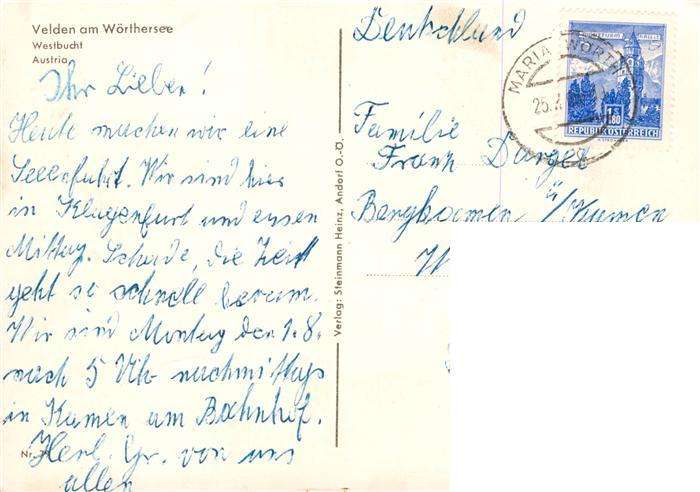 Velden am Wörthersee
Westbucht
Austria
Ihr Lieben!
Heute machen wir eine
Seenfahrt. Wir sind hier
in Klagenfurt und essen
Mittag. Schade, die Zeit
geht so schnell herum.
Wir sind Montag den 1.8.
nach 5 Uhr nachmittags
in Kamen am Bahnhof.
Herl. Gr. von uns
allen
Nr.
Verlag: Steinmann Heinz, Andorf O.-Ö.
Deutschland
Familie
Frank
Bergkamen ü/Kamen
W
MARIA WÖRTH
25.7.
1 S 80
REPUBLIK ÖSTERREICH